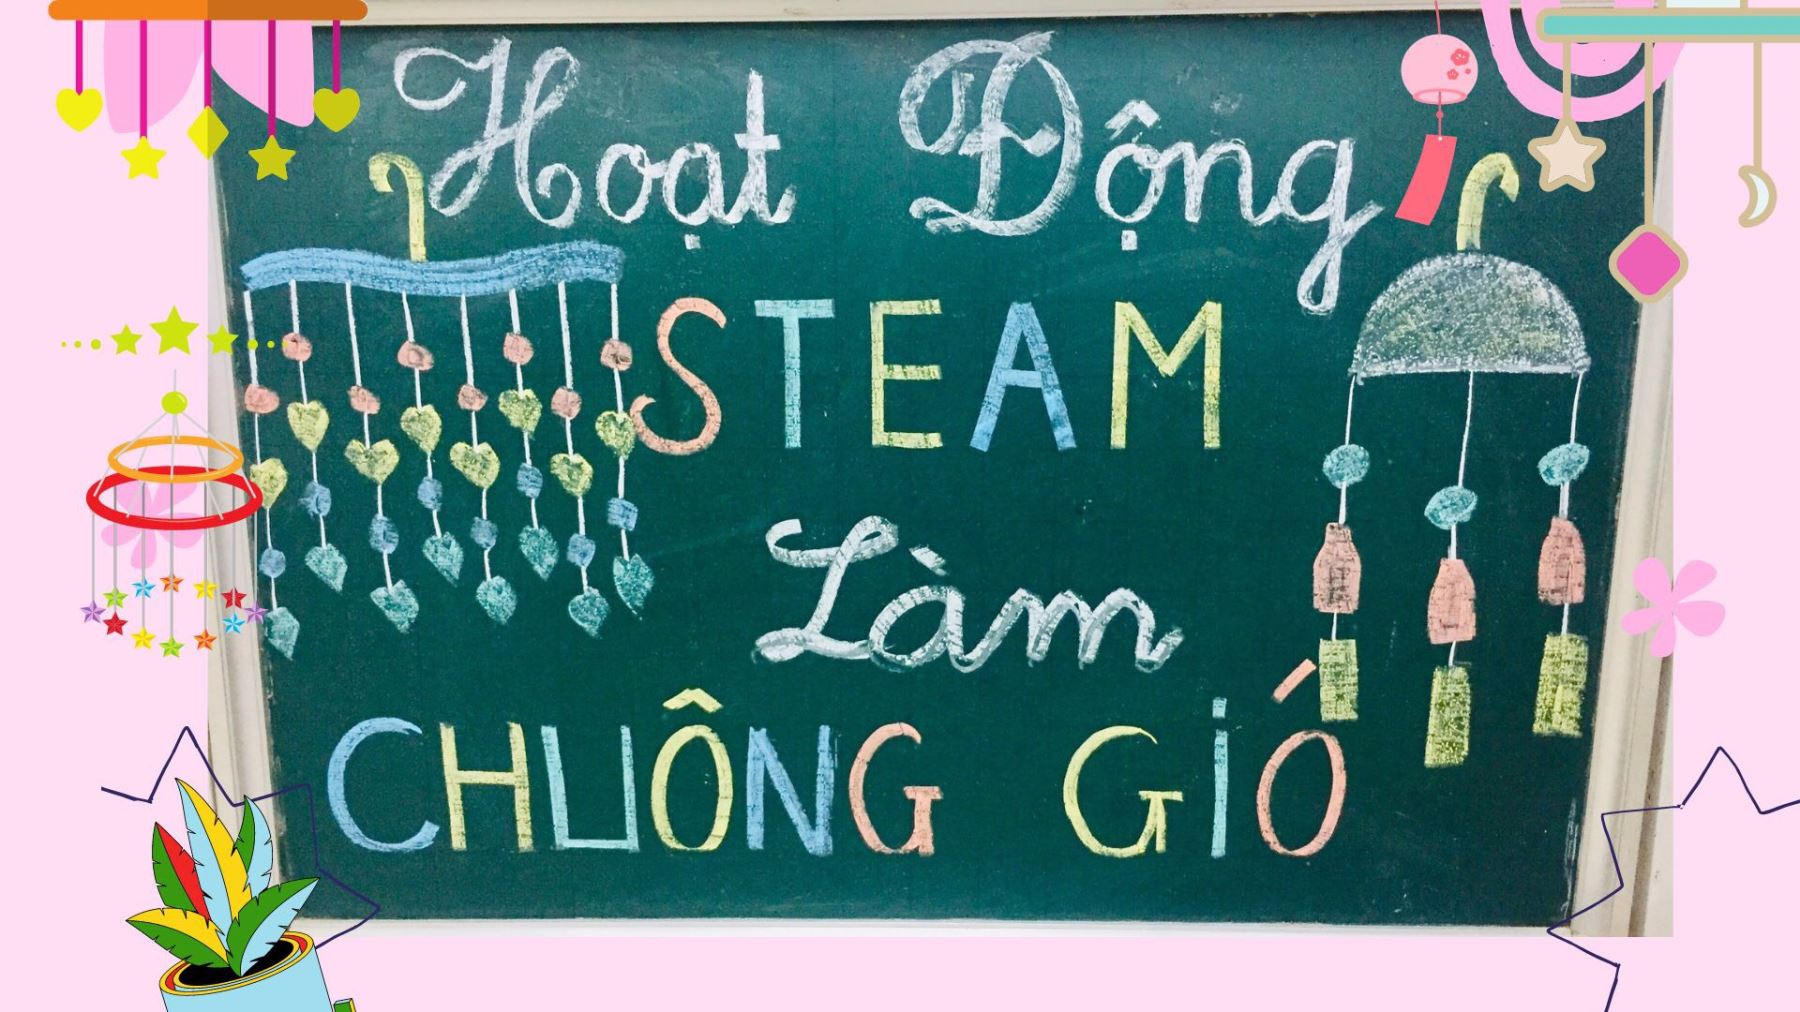 Hoạt Động
STEAM
Làm
CHUÔNG GIÓ